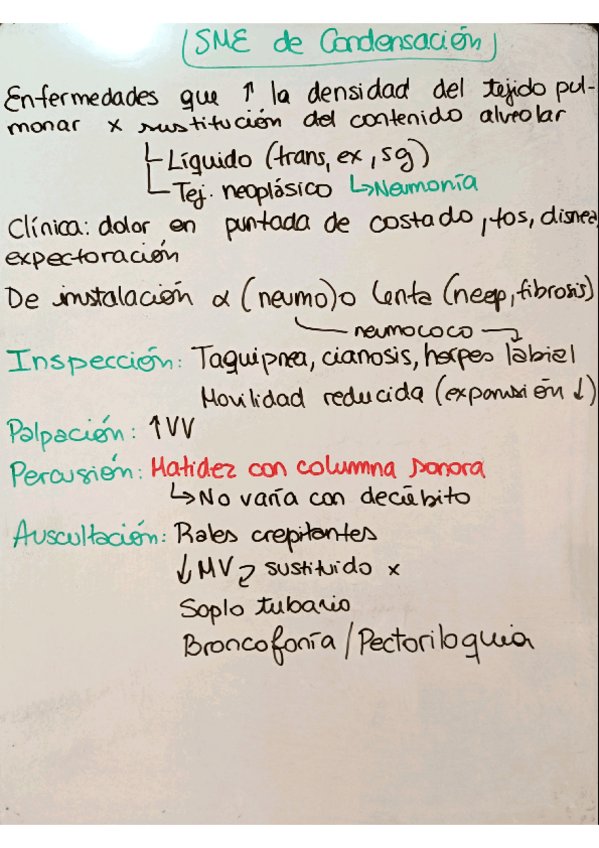 SME de Condensación
Enfermedades que ↑ la densidad del tejido pul-
monar x sustitución del contenido alveolar
Líquido (trans, ex, sg)
Tej. neoplásico ↳Neumonía
Clínica: dolor en puntada de costado, tos, disnea,
expectoración
De instalación α (neumo) o lenta (neop, fibrosis)
neumococo
Inspección: Taquipnea, cianosis, herpes labial
Movilidad reducida (expansión ↓)
Palpación: ↑VV
Percusión: Matidez con columna sonora
↳No varía con decúbito
Auscultación: Rales crepitantes
↓MV sustituido x
Soplo tubario
Broncofonía/Pectoriloquia